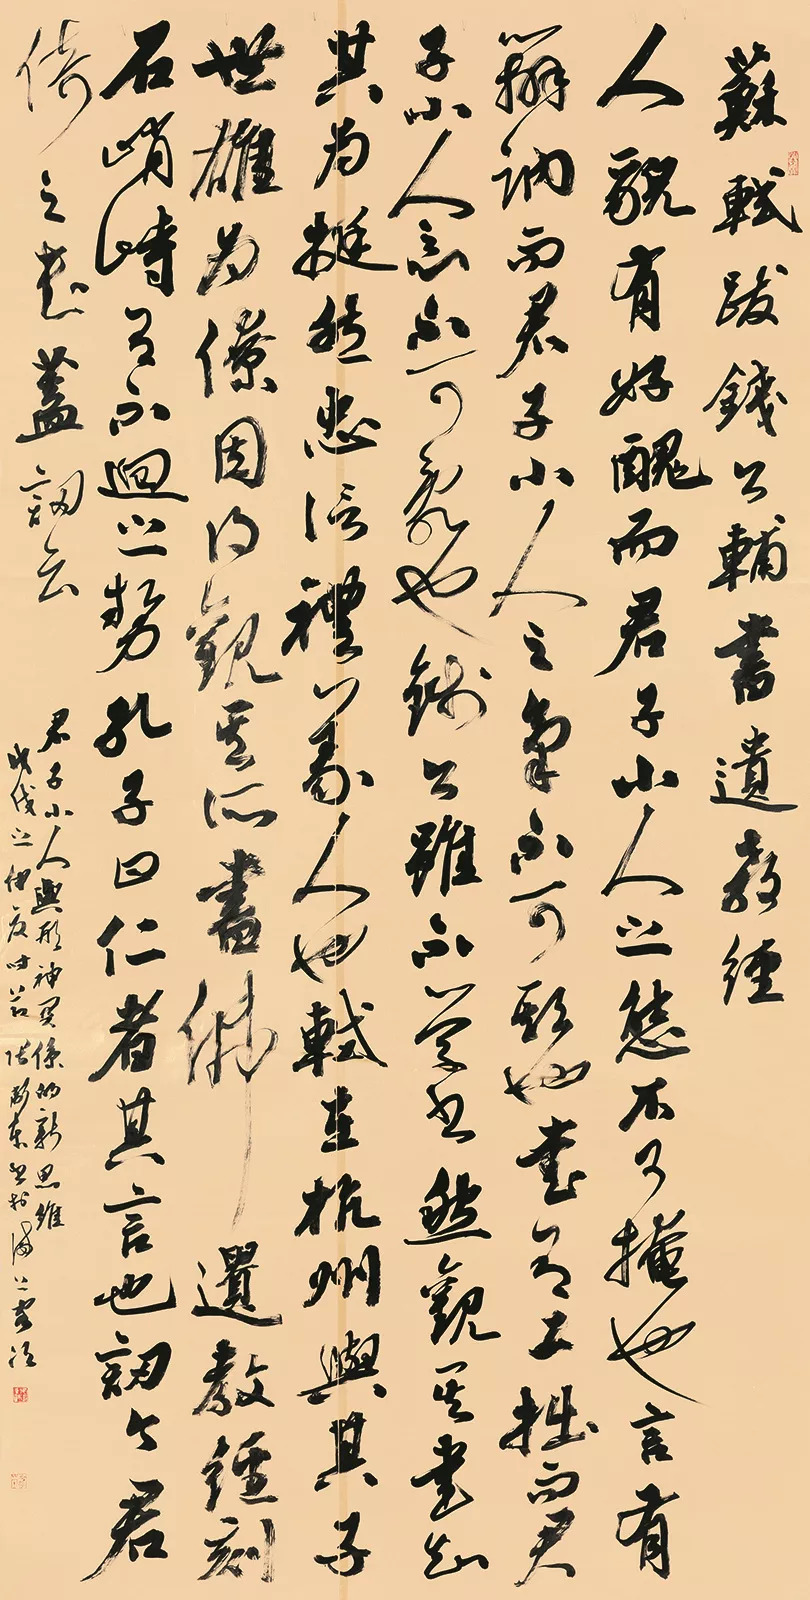 蘇軾跋錢公輔書遺教經
人貌有好醜而君子小人之態不可掩也言有
辯訥而君子小人之氣不可欺也書有工拙而君
子小人之心不可亂也錢公雖不學書然觀其書知
其為挺然忠信禮義人也軾在杭州與其子
世雄為僚因得觀其所書佛遺教經刻
石峭峙有不迴之勢孔子曰仁者其言也訒今君
倚之書蓋訒云
君子小人與形神關係的新思維
戊戌之仲夏時節東書於海上